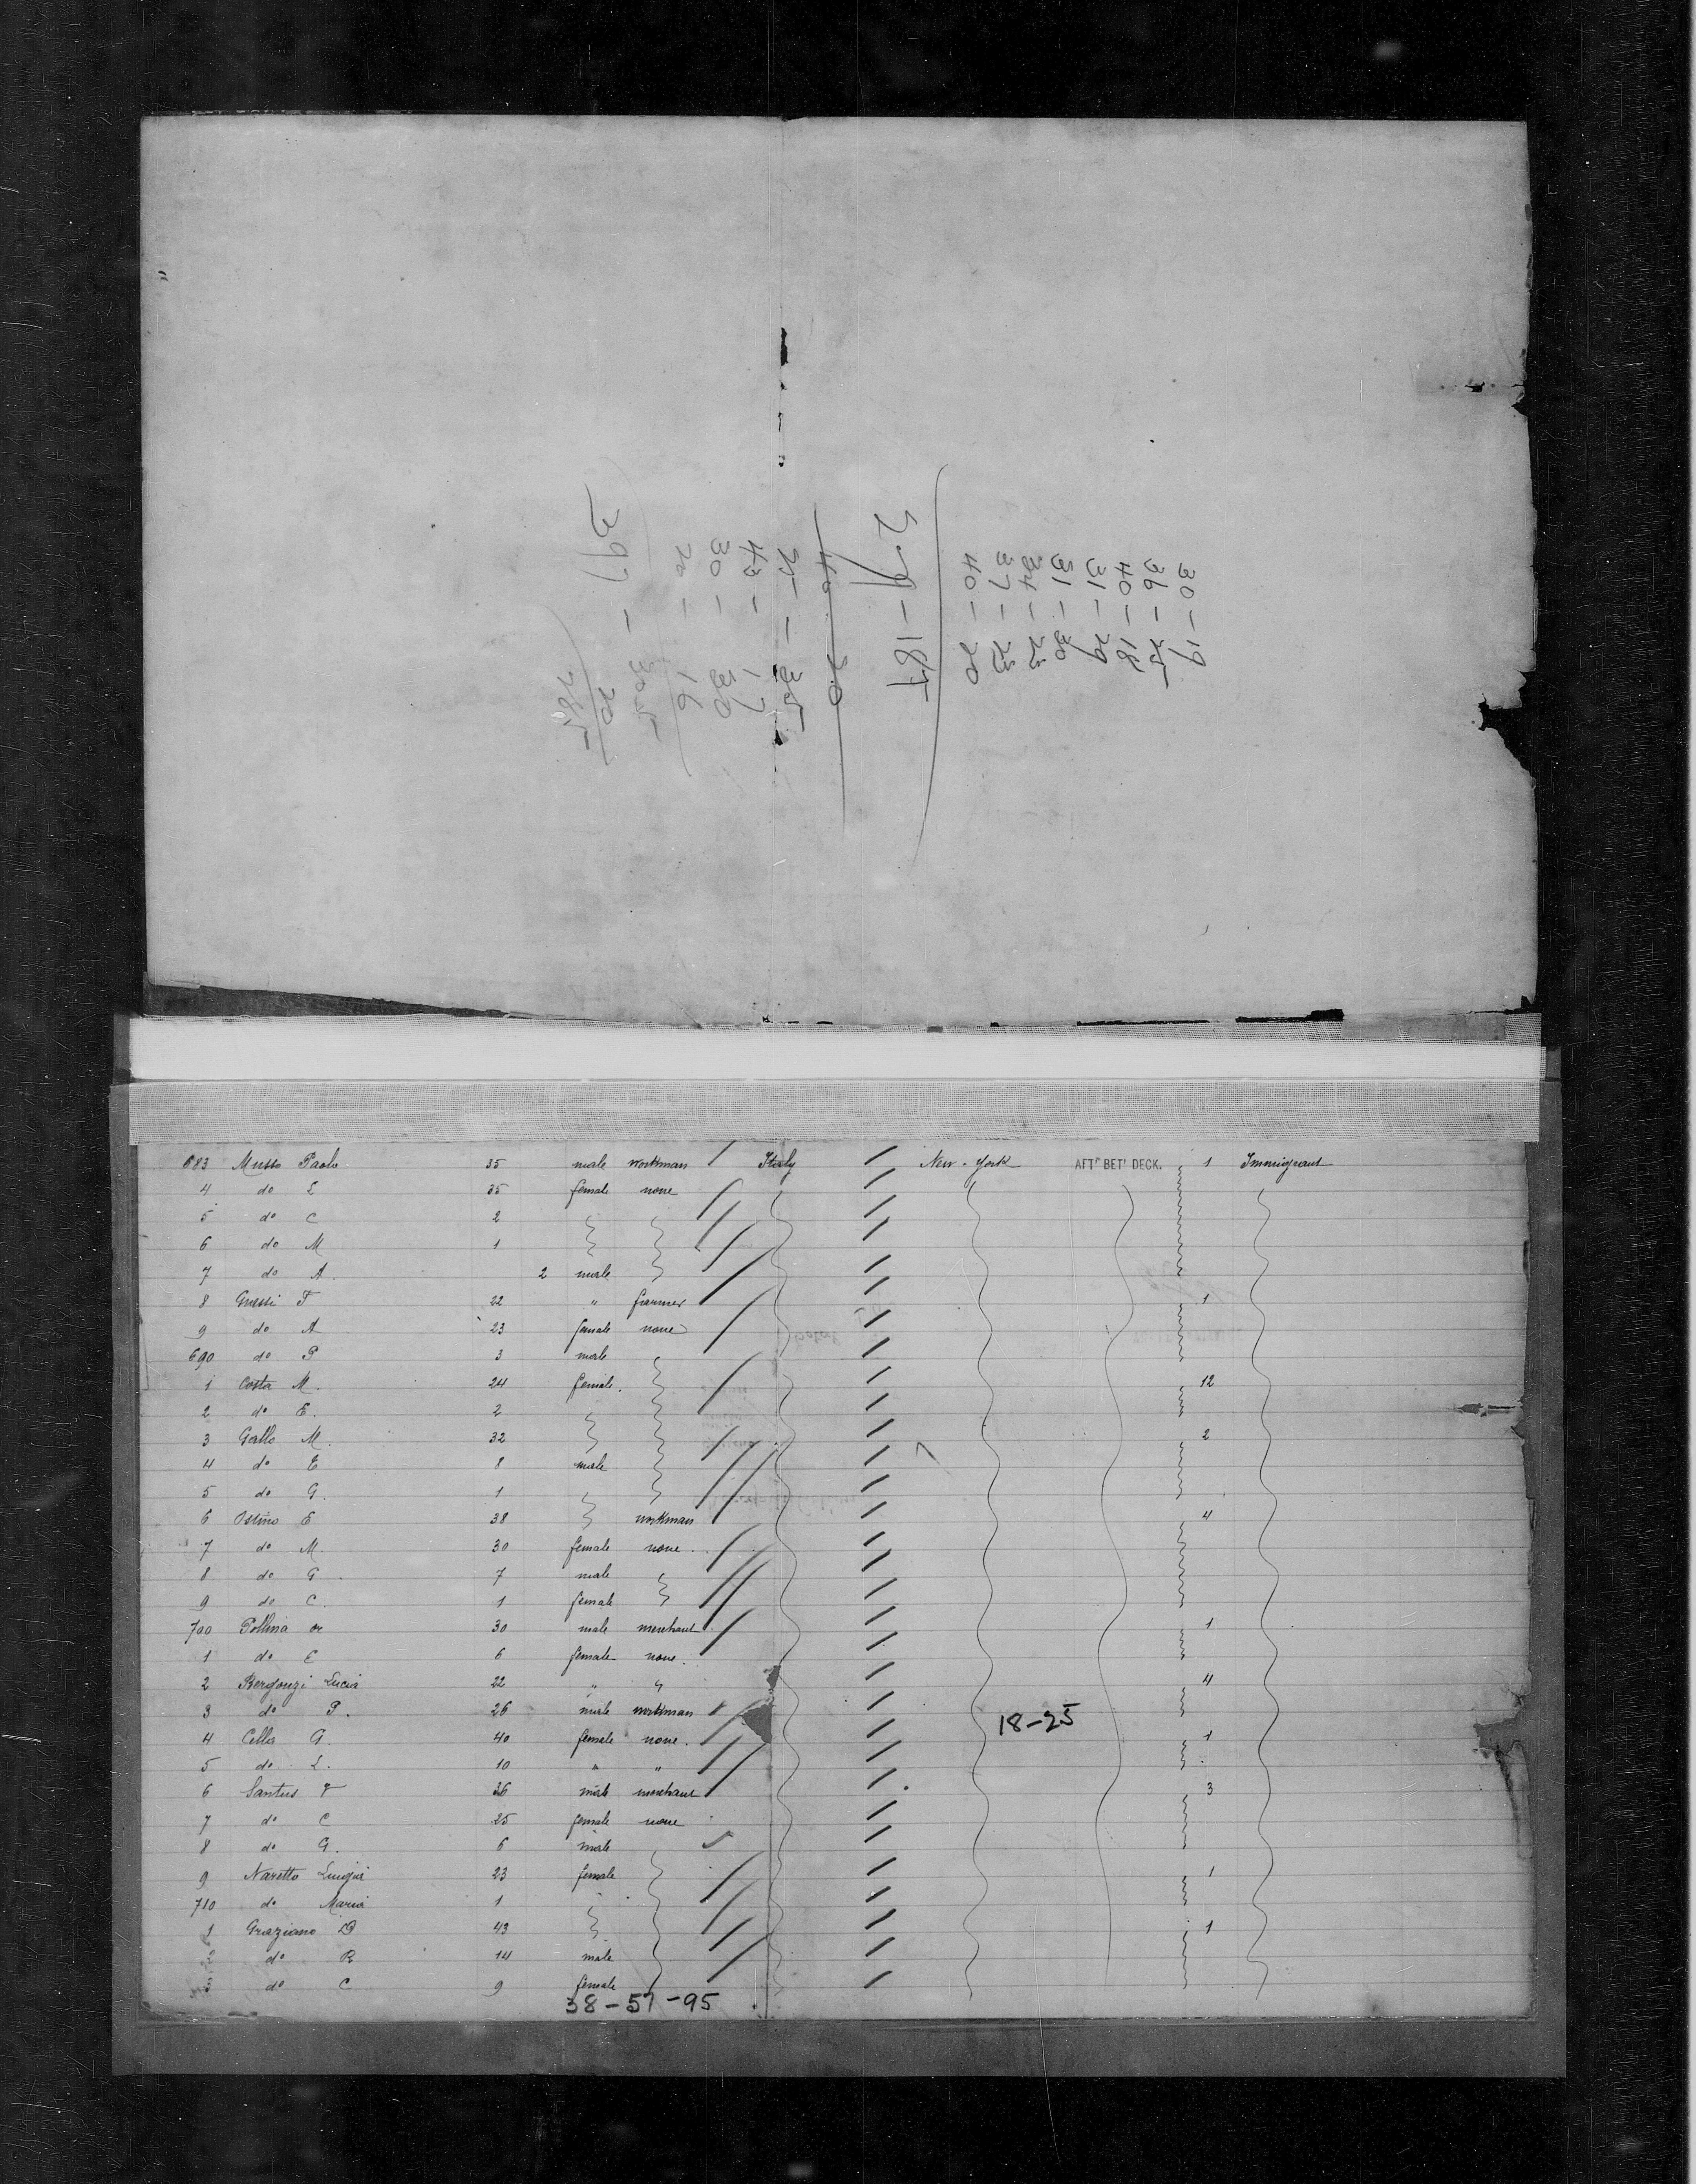 30 - 19
36 - 25
40 - 18
31 - 29
31 - 30
34 - 23
37 - 23
40 - 20
279 - 187
40 20
25 - 35
42 - 17
30 - 30
20 - 16
397 - 305
20
285
683 Musso Paolo 35 male workman Italy New-York AFTR BETN DECK. 1 Immigrant
4 do L 35 female none
5 do C 2
6 do M 1
7 do A. 2 male
8 Guessi F 22 " farmer 1
9 do A 23 female none
690 do P 3 male
1 Costa M. 24 female. 12
2 do E. 2
3 Gallo M. 32 2
4 do E 8 male
5 do G. 1
6 Ostino E 38 workman 4
7 do M. 30 female none.
8 do G. 7 male
9 do C. 1 female
700 Pollina 30 male merchant 1
1 do E 6 female none.
2 Bergonzi Lucia 22 " " 4
3 do P. 26 male workman 18-25
4 Cella G. 40 female none. 1
5 do L. 10 " "
6 Santus 36 male merchant 3
7 do C 25 female none
8 do G. 6 male
9 Naretto Luigia 23 female 1
710 do Maria 1
1 Graziano D 43 1
2 do R 14 male
3 do C 9 female
38-57-95